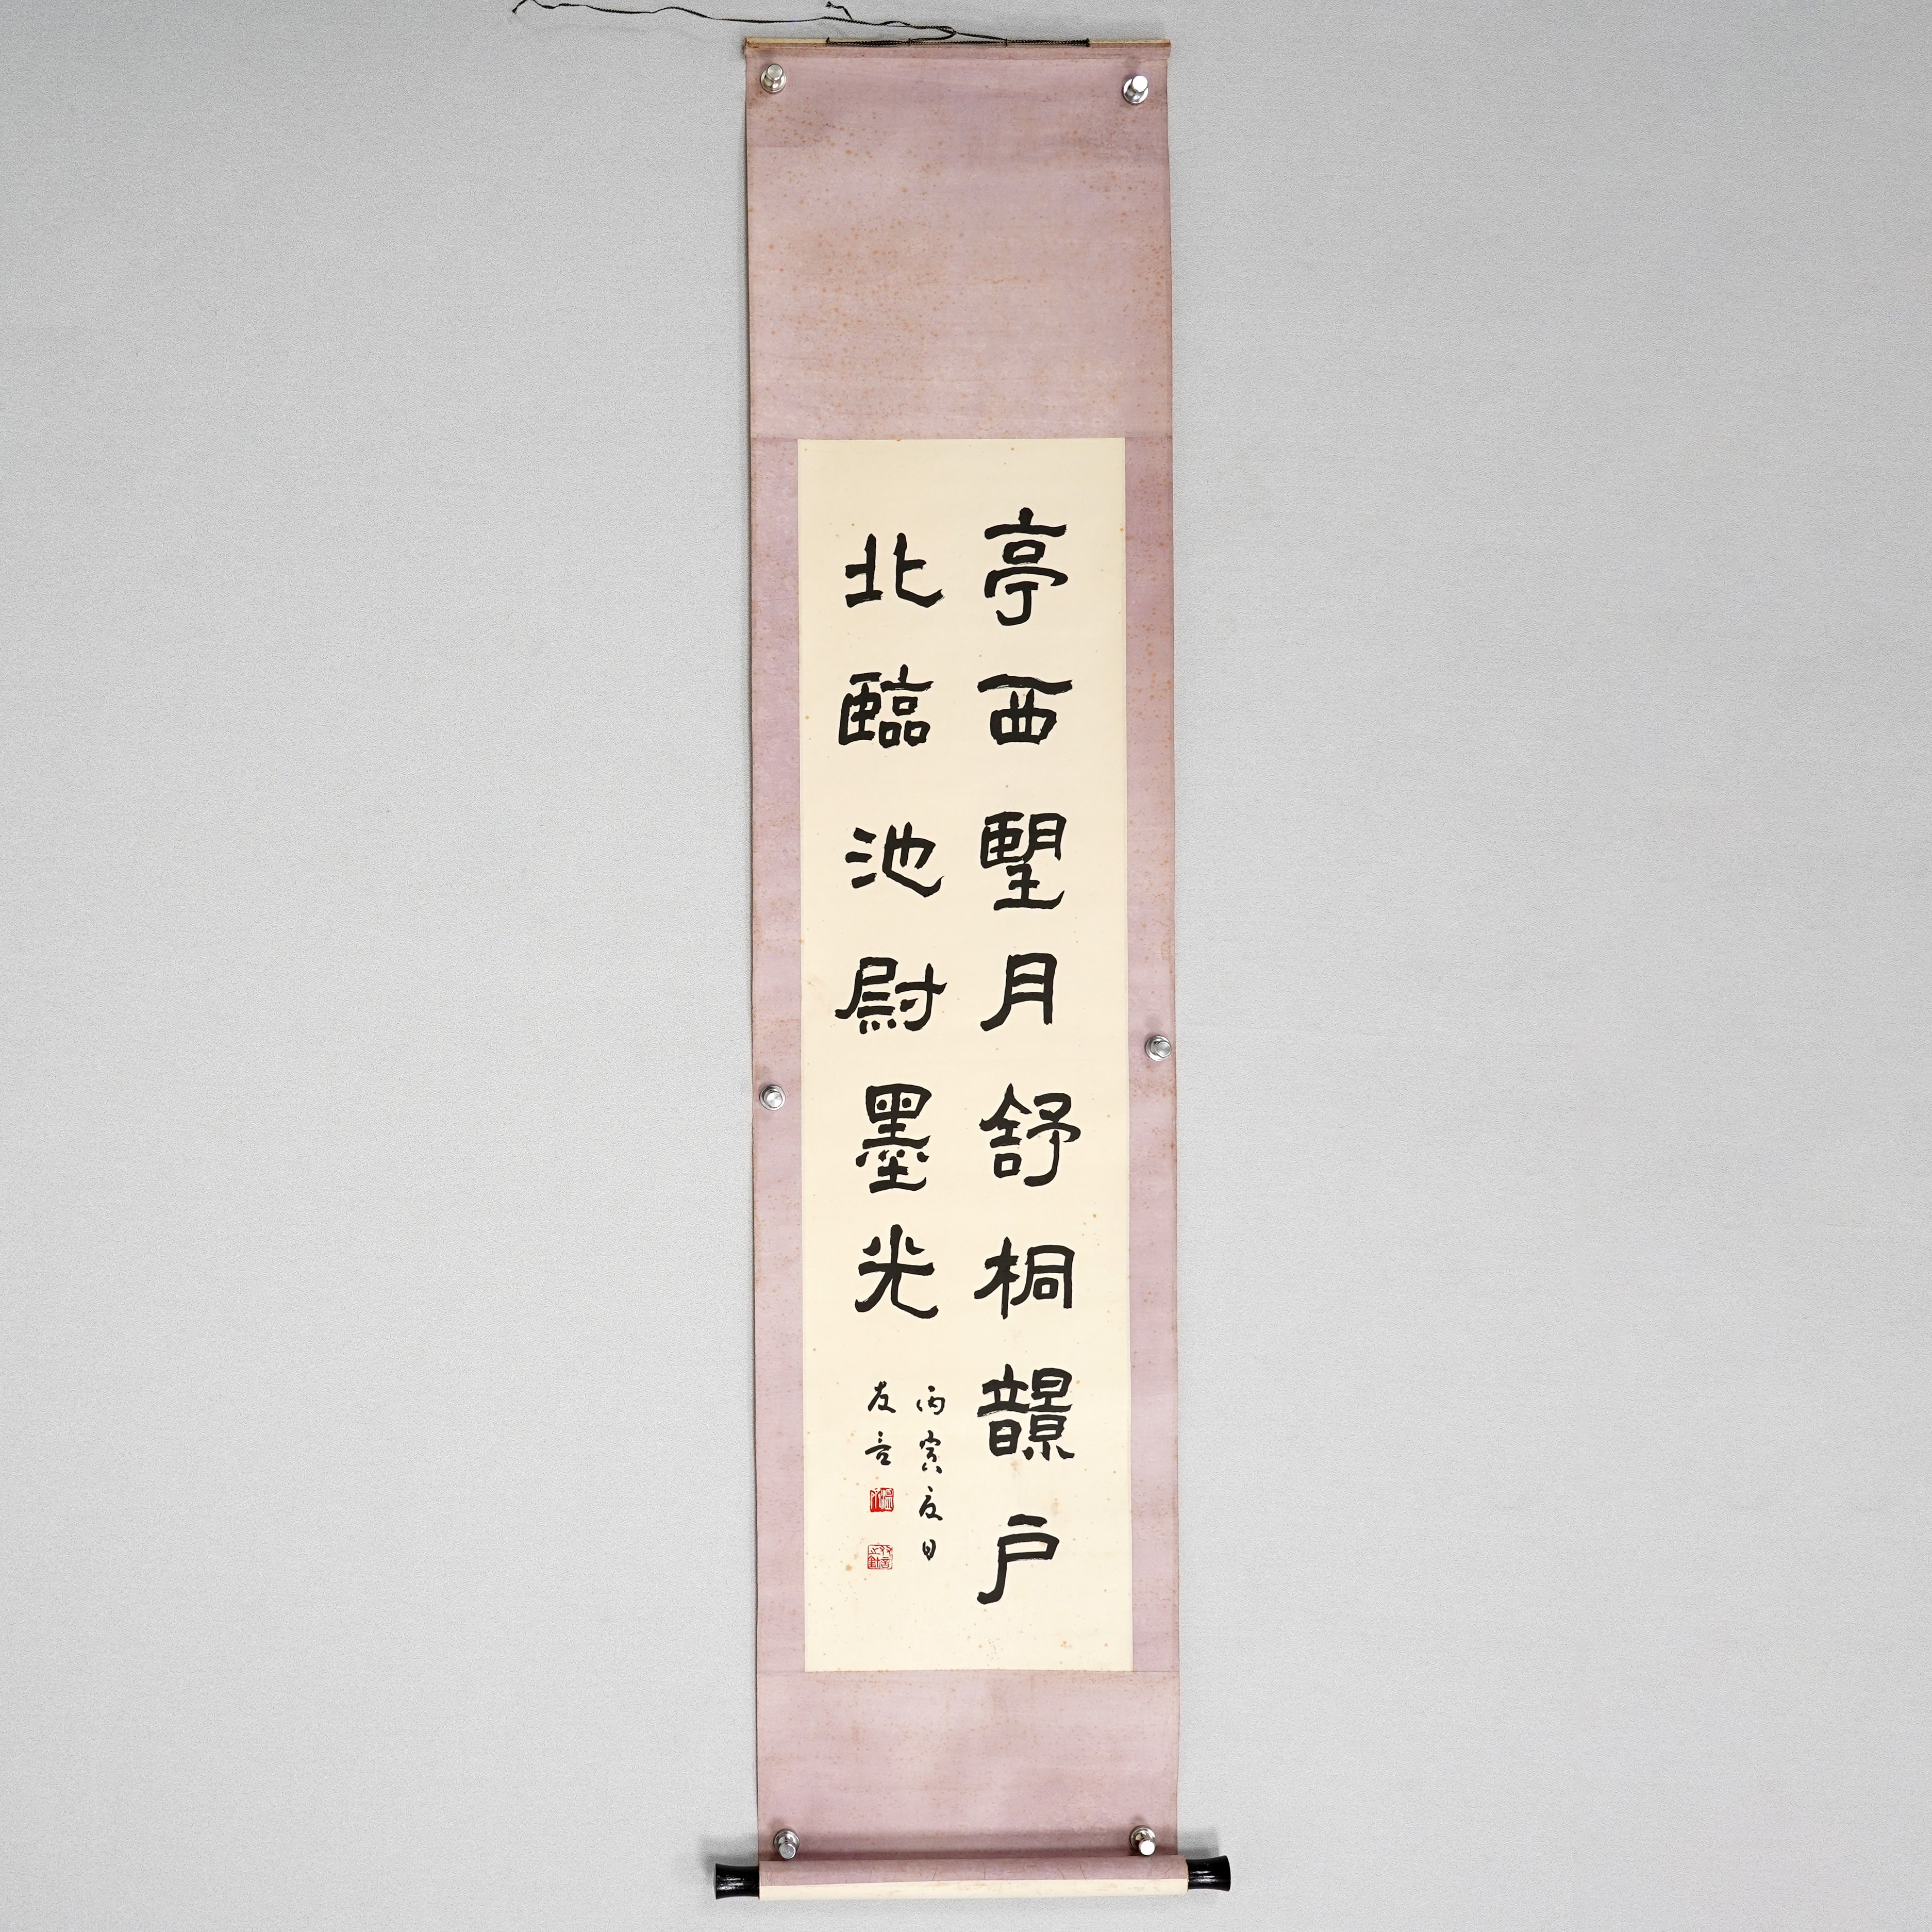 亭西朢月舒桐韻戶
北臨池尉墨光
丙寅夏日
友言